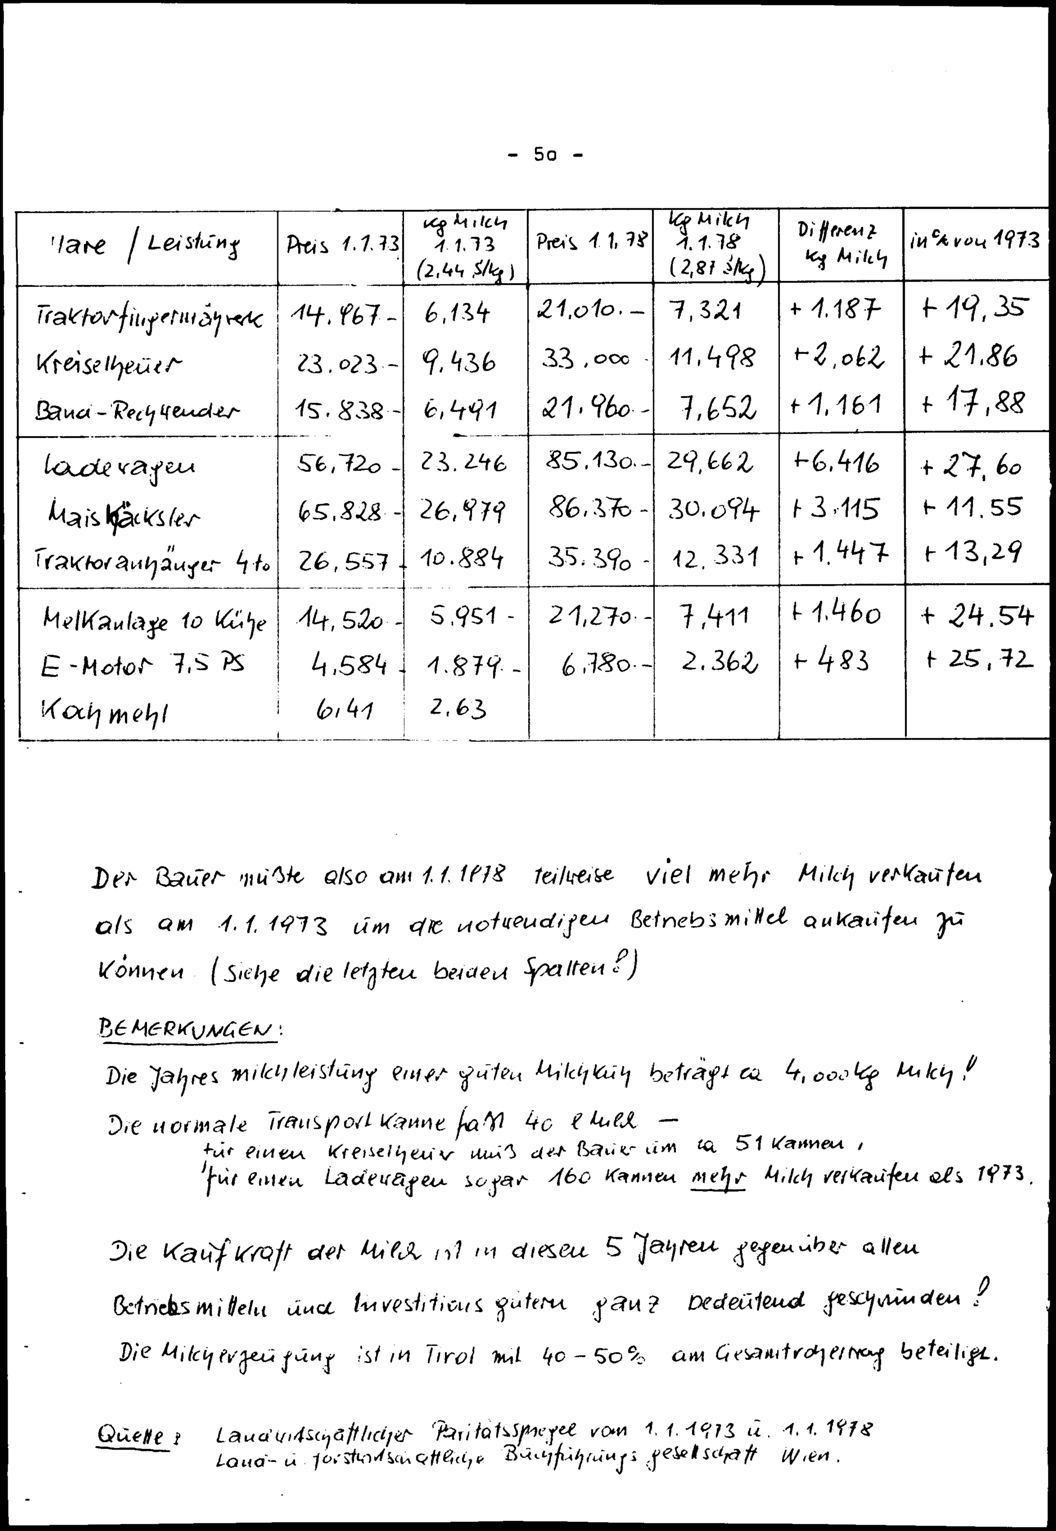 - 50 -
Ware / Leistung Preis 1.1.73 kg Milch 1.1.73 (2,44 S/kg) Preis 1.1.78 kg Milch 1.1.78 (2,87 S/kg) Differenz kg Milch in % von 1973
Traktorfingermähwerk 14.967- 6,134 21,010.- 7,321 + 1.187 + 19,35
Kreiselheuer 23.023.- 9,436 33,000 - 11,498 + 2,062 + 21,86
Band-Rechwender 15.838- 6,491 21.960.- 7,652 + 1,161 + 17,88
Ladewagen 56,720 - 23.246 85,130.- 29,662 + 6,416 + 27,60
Maishäcksler 65,828 - 26,979 86,370 - 30,094 + 3.115 + 11.55
Traktoranhänger 4to 26,557 - 10.884 35.390 - 12.331 + 1.447 + 13,29
Melkanlage 10 Kühe 14,520 - 5.951 - 21,270.- 7,411 + 1.460 + 24.54
E-Motor 7,5 PS 4,584 - 1.879.- 6.780.- 2.362 + 483 + 25,72
Kochmehl 6,41 2,63
Der Bauer müßte also am 1.1.1978 teilweise viel mehr Milch verkaufen
als am 1.1.1973 um die notwendigen Betriebsmittel ankaufen zu
können (Siehe die letzten beiden Spalten!)
BEMERKUNGEN:
Die Jahresmilchleistung einer guten Milchkuh beträgt ca 4,000 kg Milch!
Die normale Transportkanne faßt 40 l Milch —
für einen Kreiselheuer muß der Bauer um ca 51 Kannen,
für einen Ladewagen sogar 160 Kannen mehr Milch verkaufen als 1973.
Die Kaufkraft der Milch ist in diesen 5 Jahren gegenüber allen
Betriebsmitteln und Investitionsgütern ganz bedeutend geschwunden!
Die Milcherzeugung ist in Tirol mit 40-50% am Gesamtrohertrag beteiligt.
Quelle: Landwirtschaftlicher Paritätsspiegel vom 1.1.1973 u. 1.1.1978
Land- u. forstwirtschaftliche Buchführungsgesellschaft Wien.